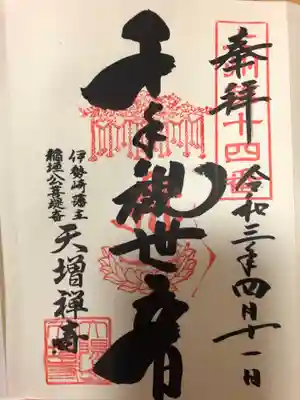 奉拝
令和三年四月十一日
十四番
千手観世音
伊勢崎藩主
稲垣公菩提寺
天増禅寺